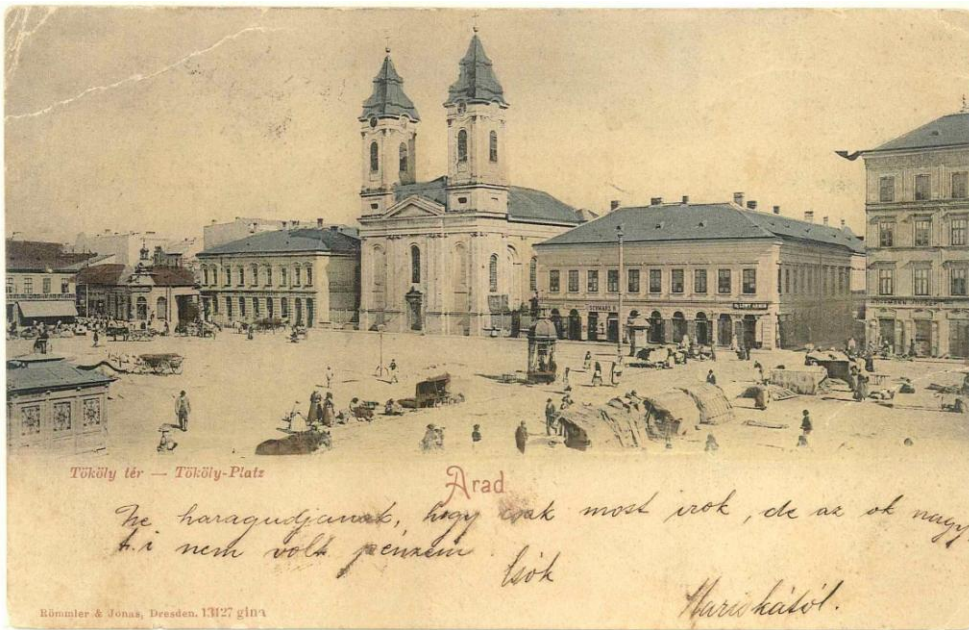 SCHWARZ
Tököly tér — Tököly-Platz
Arad
Ne haragudjanak, hogy csak most irok, de az ok nagy
t.i nem volt pénzem.
Csók
Mariskától.
Römmler & Jonas, Dresden. 13127 gina